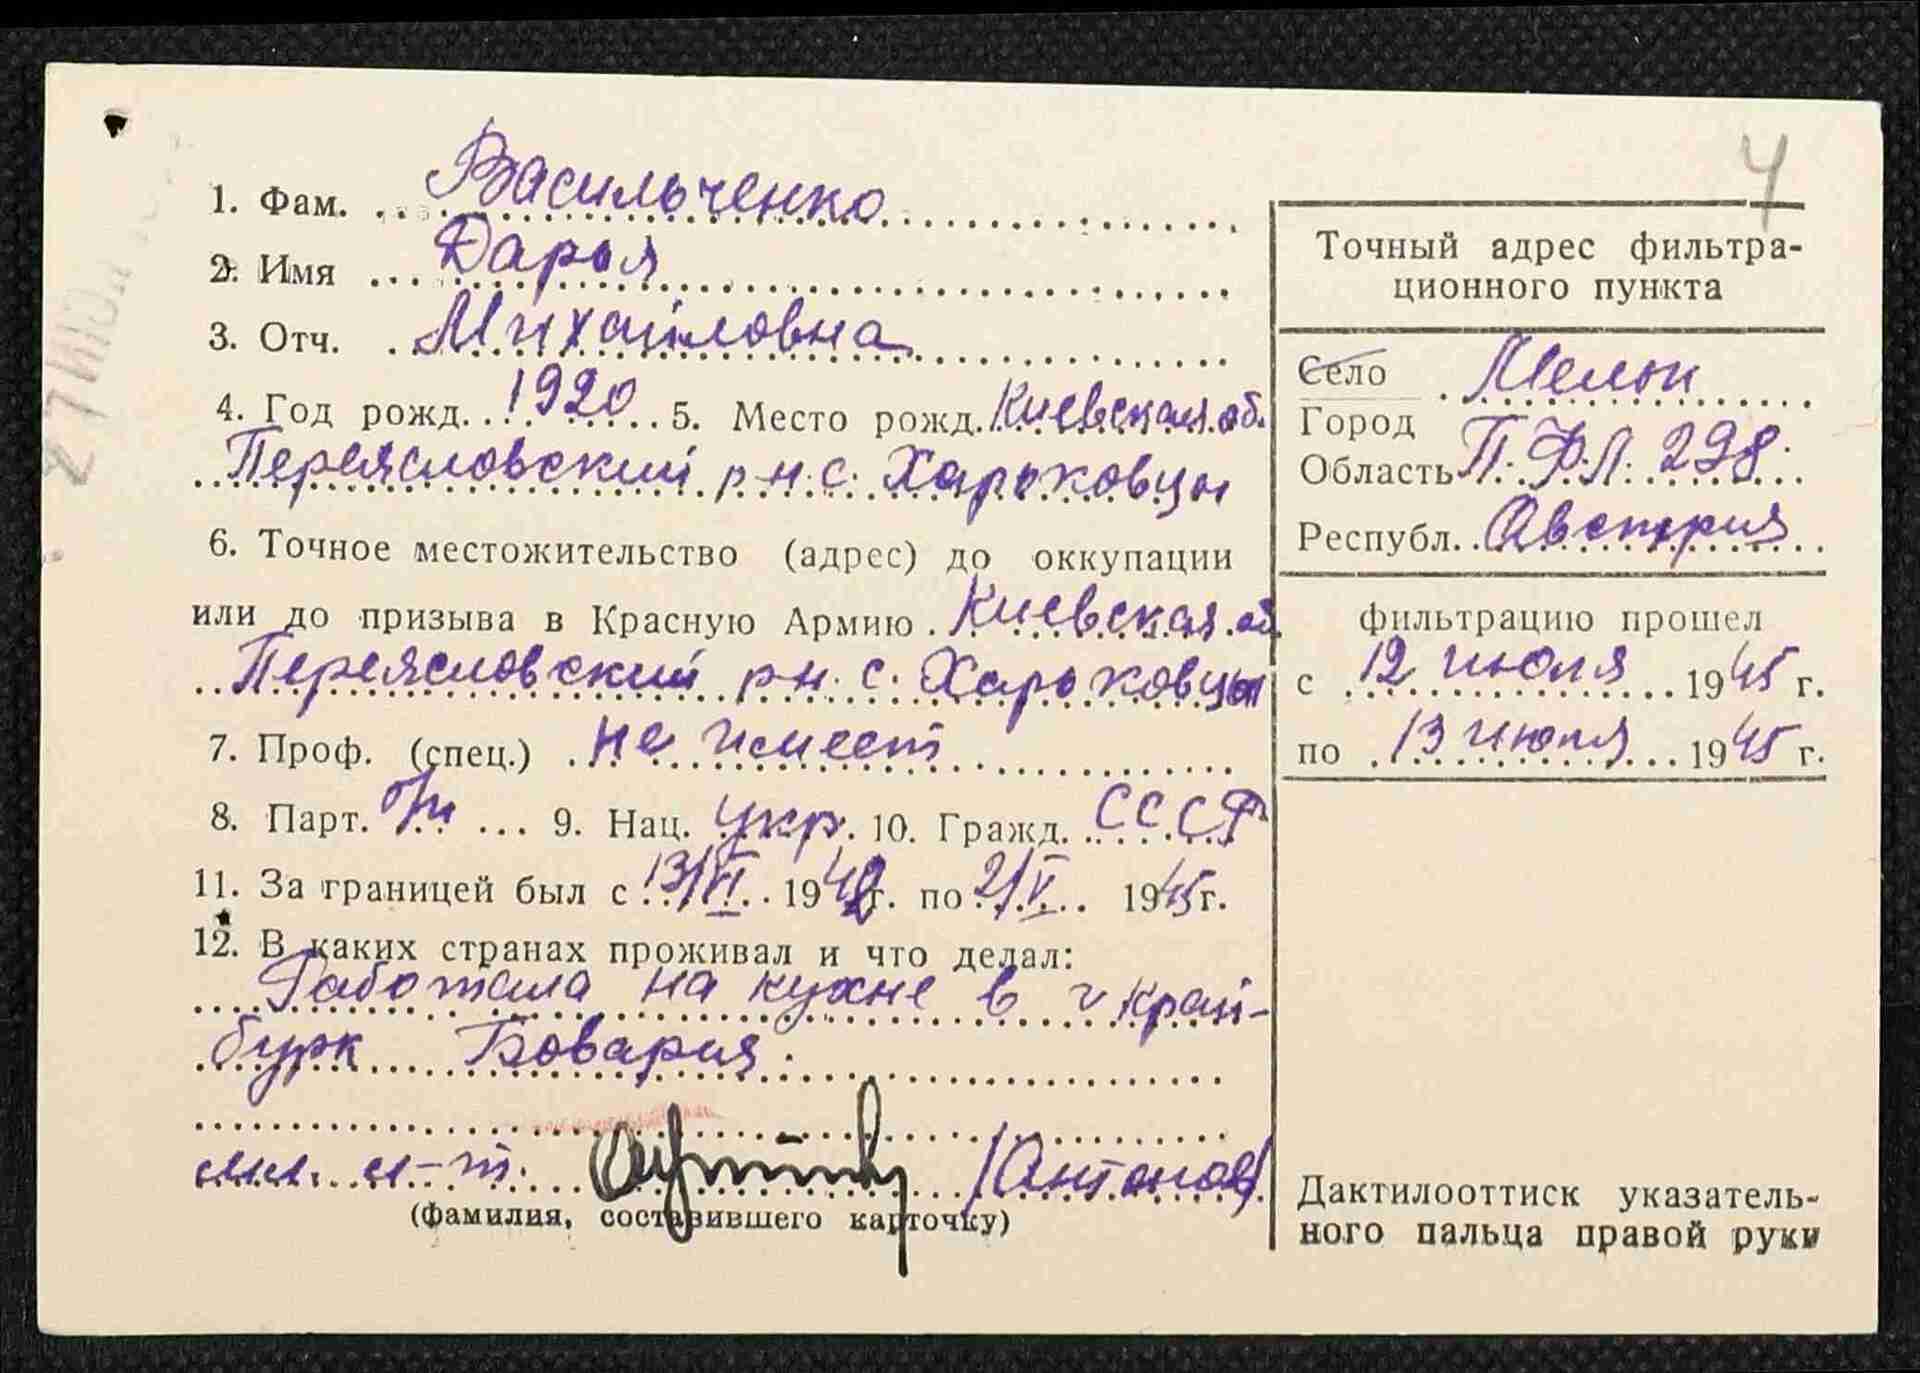 4
1. Фам. Васильченко
2. Имя Дарья
3. Отч. Михайловна
4. Год рожд. 1920 5. Место рожд. Киевская об.
Переясловский р-н. с. Харьковцы
6. Точное местожительство (адрес) до оккупации
или до призыва в Красную Армию. Киевская об.
Переясловский р-н. с. Харьковцы
7. Проф. (спец.) не имеет
8. Парт. б/п 9. Нац. укр. 10. Гражд. СССР
11. За границей был с 13/VI 1942 г. по 2/V 1945 г.
12. В каких странах проживал и что делал:
Работала на кухне в г Край-
бурк Бовария.
мл. л-т. /Антонов/
(фамилия, составившего карточку)
Точный адрес фильтра-
ционного пункта
Село Мельк
Город
Область П.Ф.Л. 298.
Республ. Австрия
фильтрацию прошел
с 12 июля 1945 г.
по 13 июля 1945 г.
Дактилооттиск указатель-
ного пальца правой руки